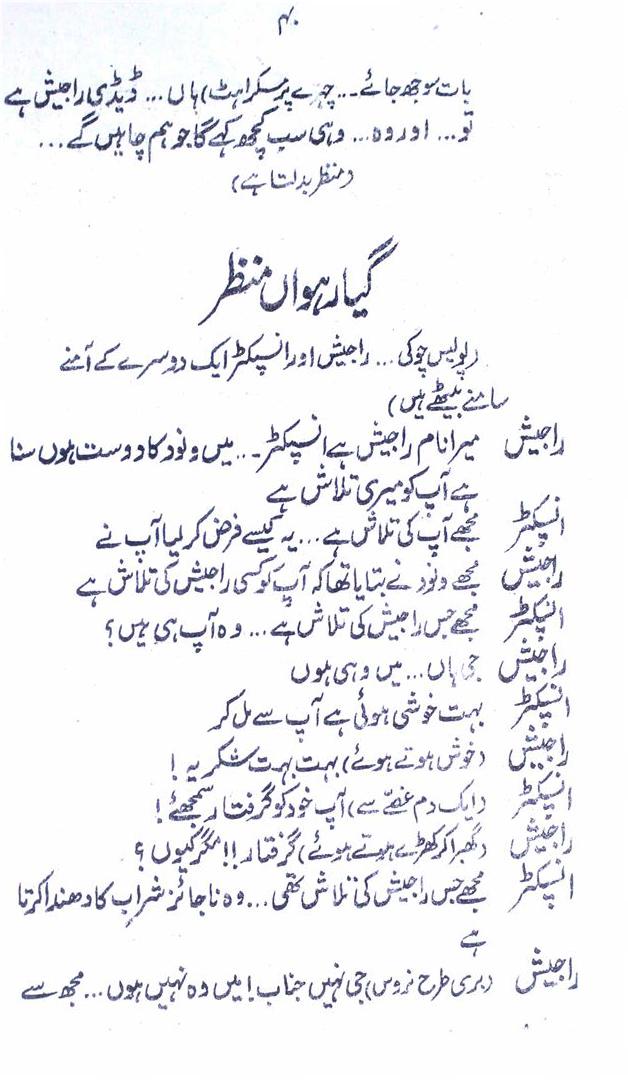 ۴۰
بات سوجھ جائے... چہرے پر مسکراہٹ) ہاں... ڈیڈی راجیش ہے
تو... اور وہ... وہی سب کچھ کہے گا جو ہم چاہیں گے...
(منظر بدلتا ہے)
گیارہواں منظر
(پولیس چوکی... راجیش اور انسپکٹر ایک دوسرے کے آمنے
سامنے بیٹھے ہیں)
راجیش میرا نام راجیش ہے انسپکٹر... میں ونود کا دوست ہوں سنا
ہے آپ کو میری تلاش ہے
انسپکٹر مجھے آپ کی تلاش ہے... یہ کیسے فرض کر لیا آپ نے
راجیش مجھے ونود نے بتایا تھا کہ آپ کو کسی راجیش کی تلاش ہے
انسپکٹر مجھے جس راجیش کی تلاش ہے... وہ آپ ہی ہیں؟
راجیش جی ہاں... میں وہی ہوں
انسپکٹر بہت خوشی ہوئی ہے آپ سے مل کر
راجیش (خوش ہوتے ہوئے) بہت بہت شکریہ!
انسپکٹر (ایک دم غصے سے) آپ خود کو گرفتار سمجھئے!
راجیش (گھبرا کر کھڑے ہوتے ہوئے) گرفتار!! مگر کیوں؟
انسپکٹر مجھے جس راجیش کی تلاش تھی... وہ ناجائز شراب کا دھندا کرتا
ہے
راجیش (بری طرح نروس) جی نہیں جناب! میں وہ نہیں ہوں... مجھ سے